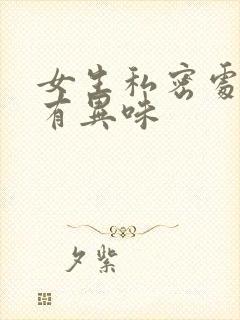 女生私密處
有異味
夕紫